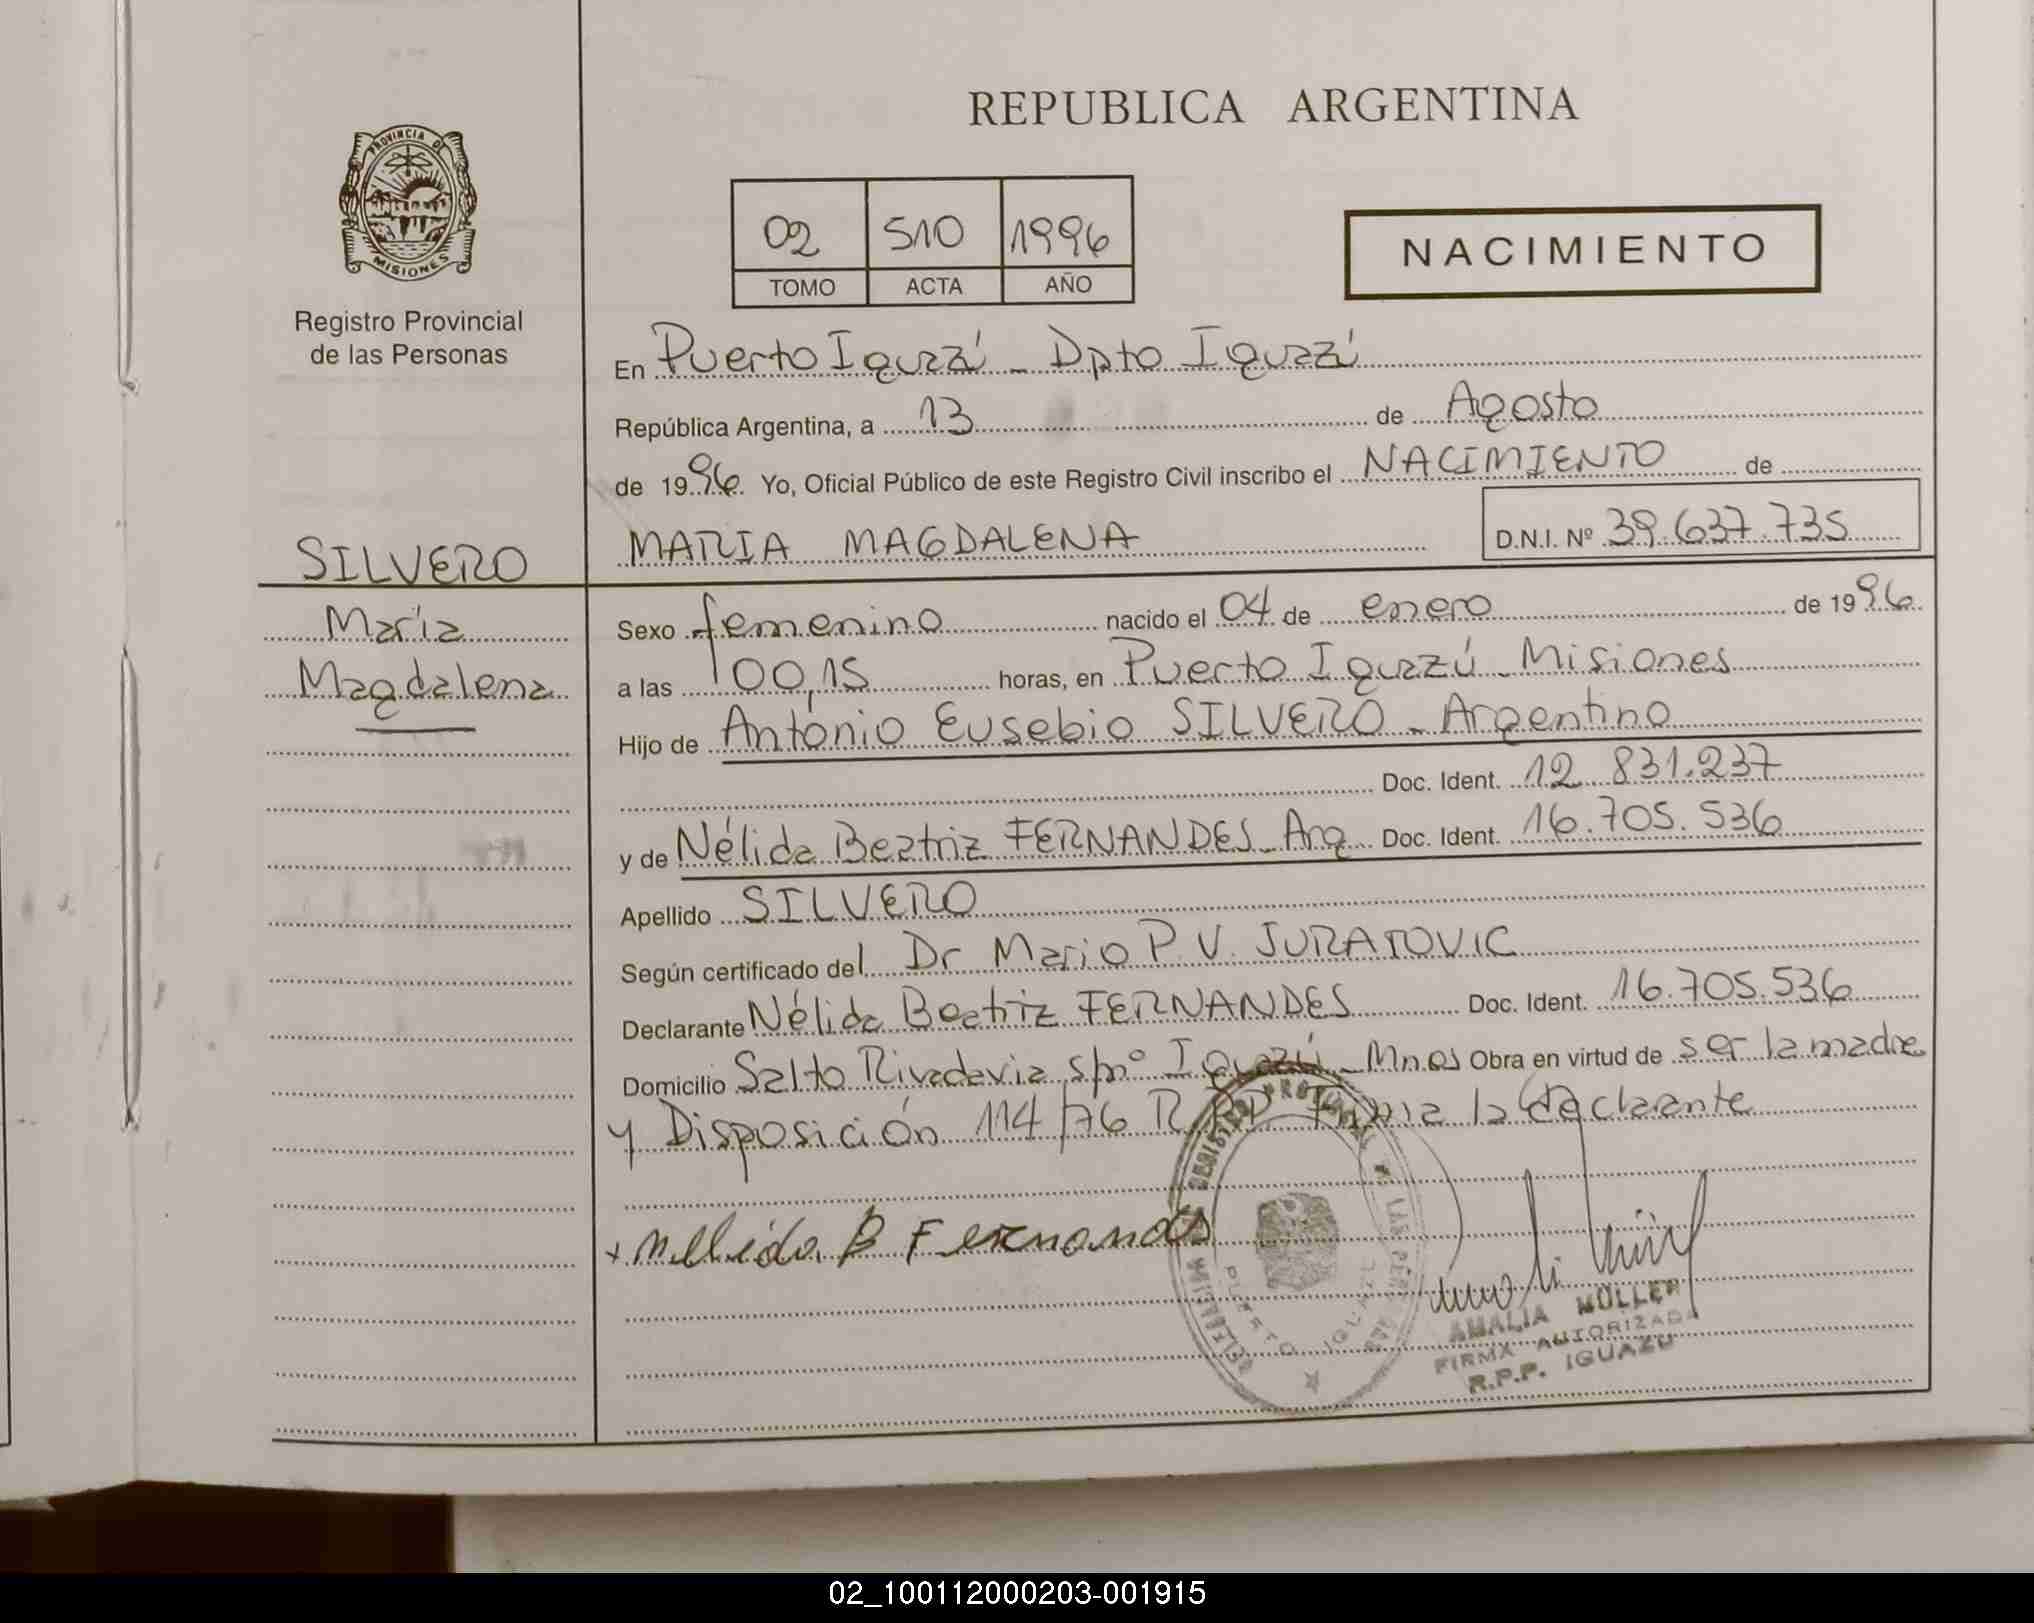 REPUBLICA ARGENTINA
PROVINCIA DE
MISIONES
Registro Provincial
de las Personas
02 510 1996
TOMO ACTA AÑO
NACIMIENTO
En Puerto Iguazú - Dpto Iguazú
República Argentina, a 13 de Agosto
de 1996 Yo, Oficial Público de este Registro Civil inscribo el NACIMIENTO de
MARIA MAGDALENA D.N.I. Nº 39.637.735
SILVERO
María
Magdalena
Sexo femenino nacido el 04 de enero de 1996
a las 00,15 horas, en Puerto Iguazú - Misiones
Hijo de Antonio Eusebio SILVERO - Argentino
Doc. Ident. 12.831.237
y de Nélida Beatriz FERNANDES - Arg Doc. Ident. 16.705.536
Apellido SILVERO
Según certificado del Dr Mario P. V. JURATOVIC
Declarante Nélida Beatriz FERNANDES Doc. Ident. 16.705.536
Domicilio Salto Rivadavia s/nº Iguazú - Mnes Obra en virtud de ser la madre
y Disposición 114/76 R.P.P. Firma la declarante
REGISTRO PROVINCIAL DE LAS PERSONAS
MISIONES
PUERTO IGUAZU
+ Nellida B Fernandes
AMALIA MÜLLER
FIRMA AUTORIZADA
R.P.P. IGUAZU
02_100112000203-001915